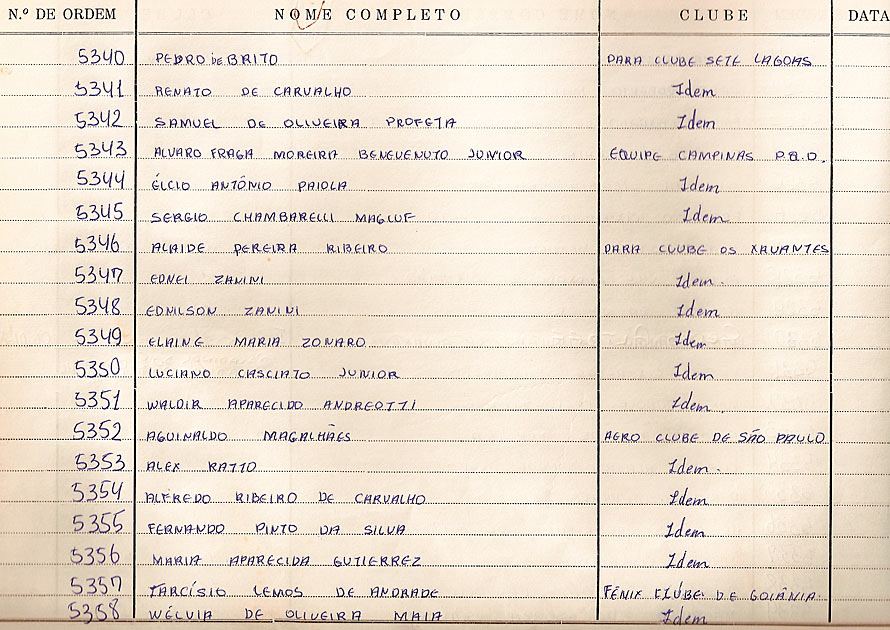 N.º DE ORDEM NOME COMPLETO CLUBE DATA
5340 PEDRO DE BRITO PARA CLUBE SETE LAGOAS
5341 RENATO DE CARVALHO Idem
5342 SAMUEL DE OLIVEIRA PROFETA Idem
5343 ALVARO FRAGA MOREIRA BENEVENUTO JUNIOR EQUIPE CAMPINAS P.Q.D.
5344 ÉLCIO ANTÔNIO PAIOLA Idem
5345 SERGIO CHAMBARELLI MAGLUF Idem
5346 ALAIDE PEREIRA RIBEIRO PARA CLUBE OS XAVANTES
5347 EDNEI ZANINI Idem.
5348 EDNILSON ZANINI Idem
5349 ELAINE MARIA ZONARO Idem
5350 LUCIANO CASCIATO JUNIOR Idem
5351 WALDIR APARECIDO ANDREOTTI Idem.
5352 AGUINALDO MAGALHÃES AERO CLUBE DE SÃO PAULO
5353 ALEX RATTO Idem.
5354 ALFREDO RIBEIRO DE CARVALHO Idem
5355 FERNANDO PINTO DA SILVA Idem
5356 MARIA APARECIDA GUTIERREZ Idem
5357 TARCÍSIO LEMOS DE ANDRADE FÊNIX CLUBE DE GOIÂNIA
5358 WÉLVIA DE OLIVEIRA MAIA Idem